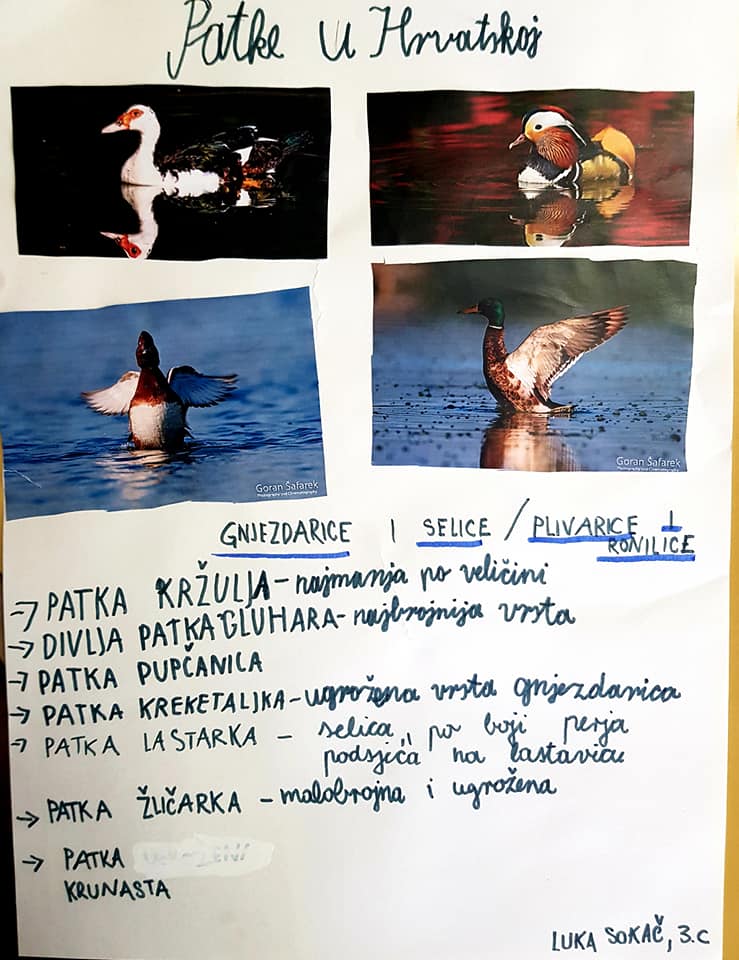 Patke u Hrvatskoj
Goran Šafarek
Photography and Cinematography
Goran Šafarek
Photography and Cinematography
GNJEZDARICE I SELICE / PLIVARICE I
RONILICE
→ PATKA KRŽULJA - najmanja po veličini
→ DIVLJA PATKA GLUHARA - najbrojnija vrsta
→ PATKA PUPČANICA
→ PATKA KREKETALJKA - ugrožena vrsta gnjezdarica
→ PATKA LASTARKA - selica, po boji perja
podsjića na lastavicu
→ PATKA ŽLIČARKA - malobrojna i ugrožena
→ PATKA
KRUNASTA
LUKA SOKAČ, 3.c